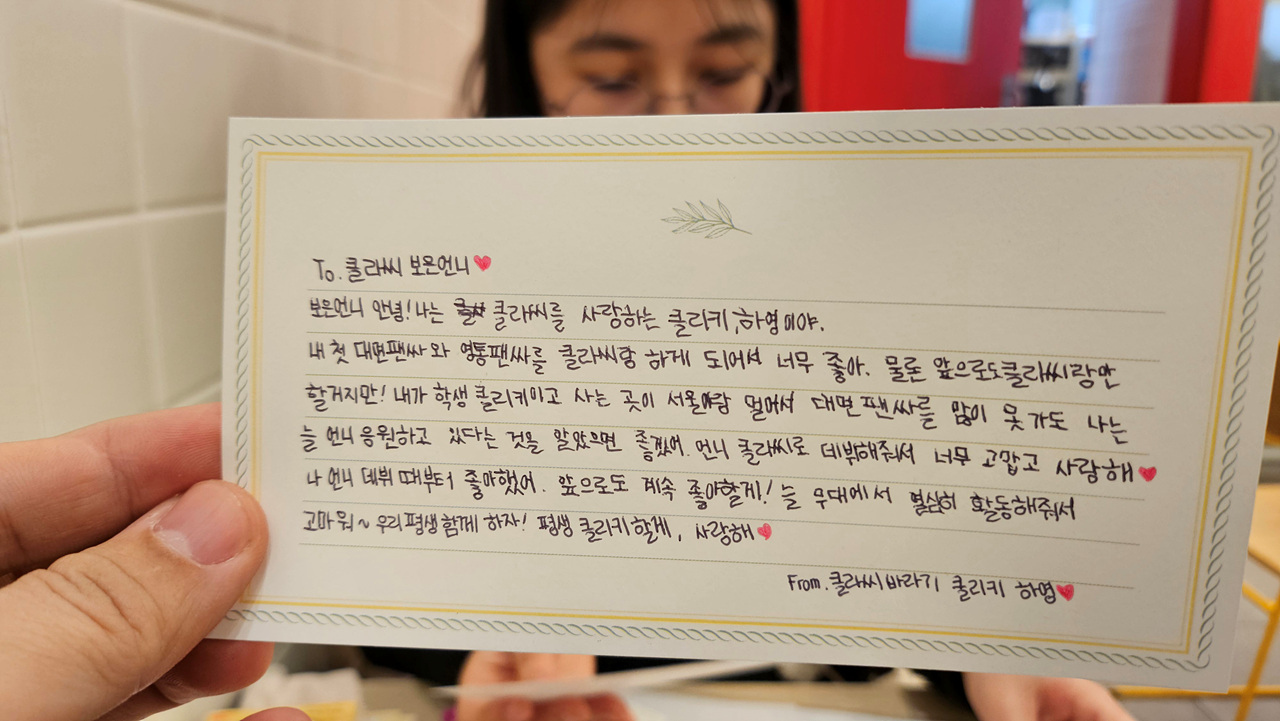 To. 클라씨 보은언니
보은언니 안녕! 나는 클라씨를 사랑하는 클리키, 하영이야.
내 첫 대면팬싸와 영통팬싸를 클라씨랑 하게 되어서 너무 좋아. 물론 앞으로도 클라씨랑만
할거지만! 내가 학생 클리키이고 사는 곳이 서울이랑 멀어서 대면팬싸를 많이 못가도 나는
늘 언니 응원하고 있다는 것을 알았으면 좋겠어. 언니 클라씨로 데뷔해줘서 너무 고맙고 사랑해
나 언니 데뷔 때부터 좋아했어. 앞으로도 계속 좋아할게! 늘 무대에서 열심히 활동해줘서
고마워~ 우리 평생 함께 하자! 평생 클리키할게, 사랑해
From. 클라씨바라기 클리키 하영